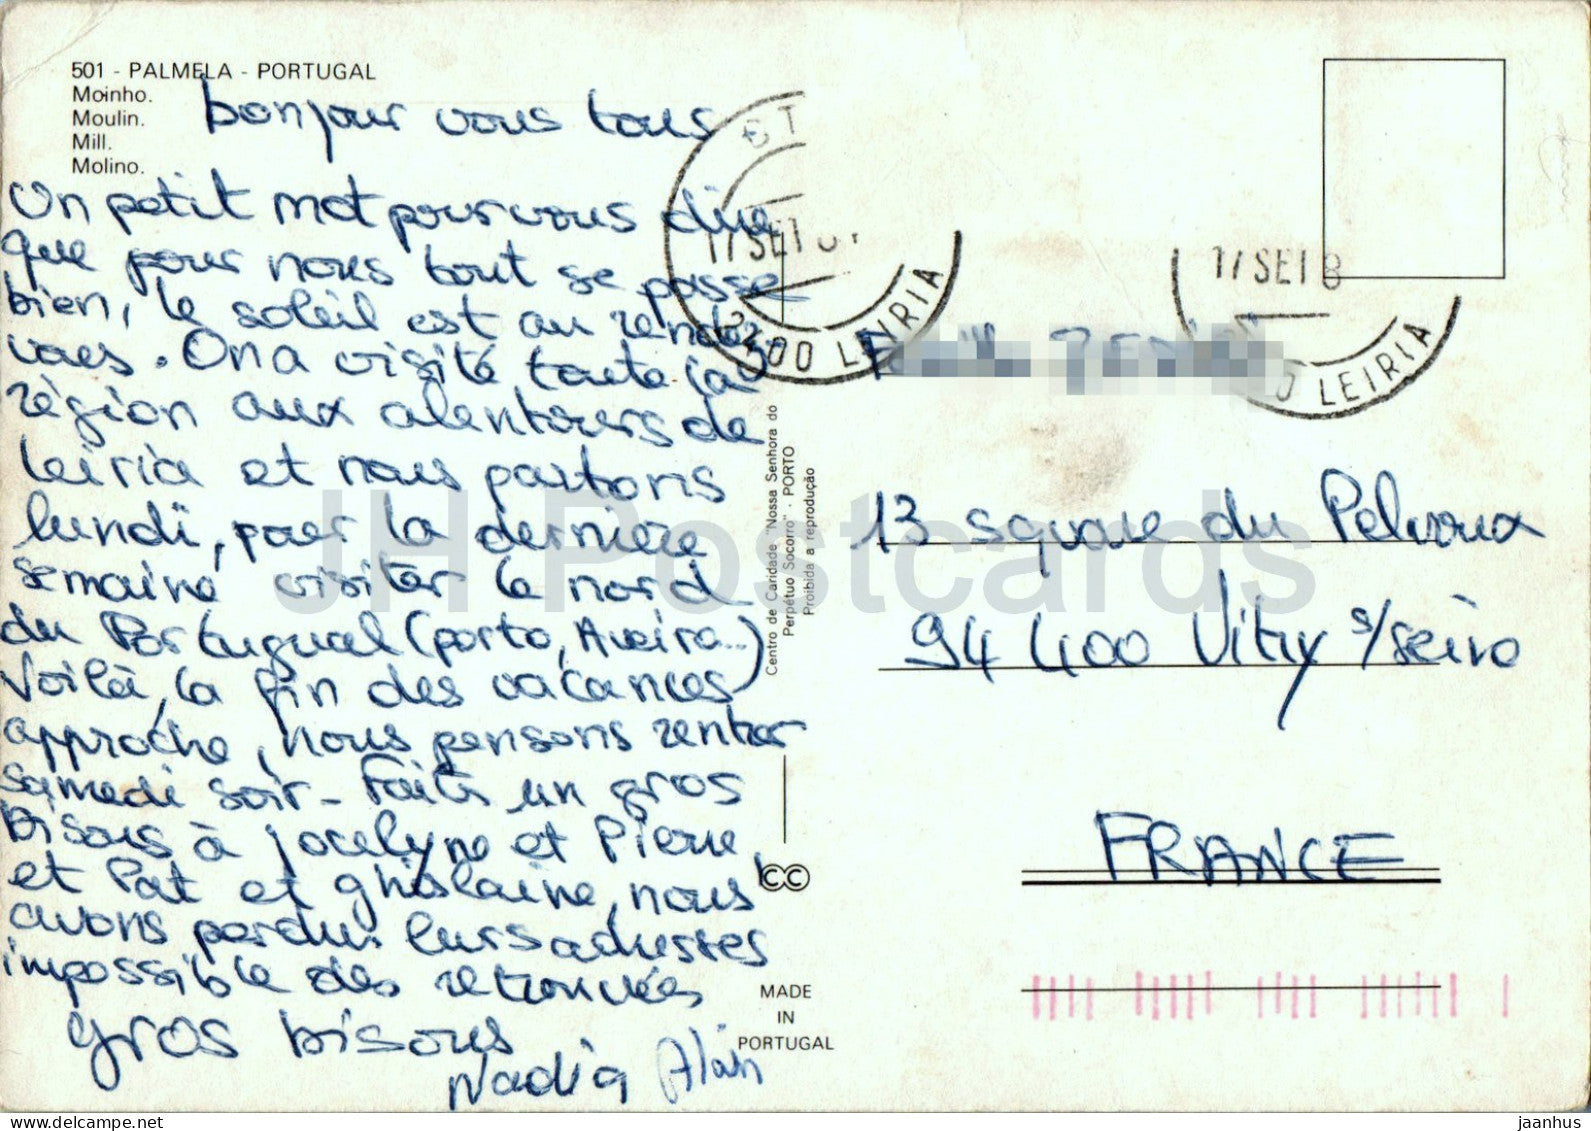 501 - PALMELA - PORTUGAL
Moinho.
Moulin.
Mill.
Molino.
bonjour vous tous
Un petit mot pour vous dire
que pour nous tout se passe
bien, le soleil est au rendez
vous. On a visité toute la
région aux alentours de
Leiria et nous partons
lundi, pour la dernière
semaine visiter le nord
du Portugual (porto, Aveiro...)
Voilà, la fin des vacances
approche, nous pensons rentrer
samedi soir - Faits un gros
bisous à Jocelyne et Pierre,
et Pat et ghislaine, nous
avons perdu leurs adresses
impossible des retrouvées
gros bisous
Nadia Alain
17 SET 8
2400 LEIRIA
17 SET 8
LEIRIA
Centro de Caridade "Nossa Senhora do
Perpétuo Socorro" - PORTO
Proibida a reprodução
CC
MADE
IN
PORTUGAL
13 square du Pelvoux
94 400 Vitry s/seine
FRANCE
JH Postcards
delcampe.net
jaanhus